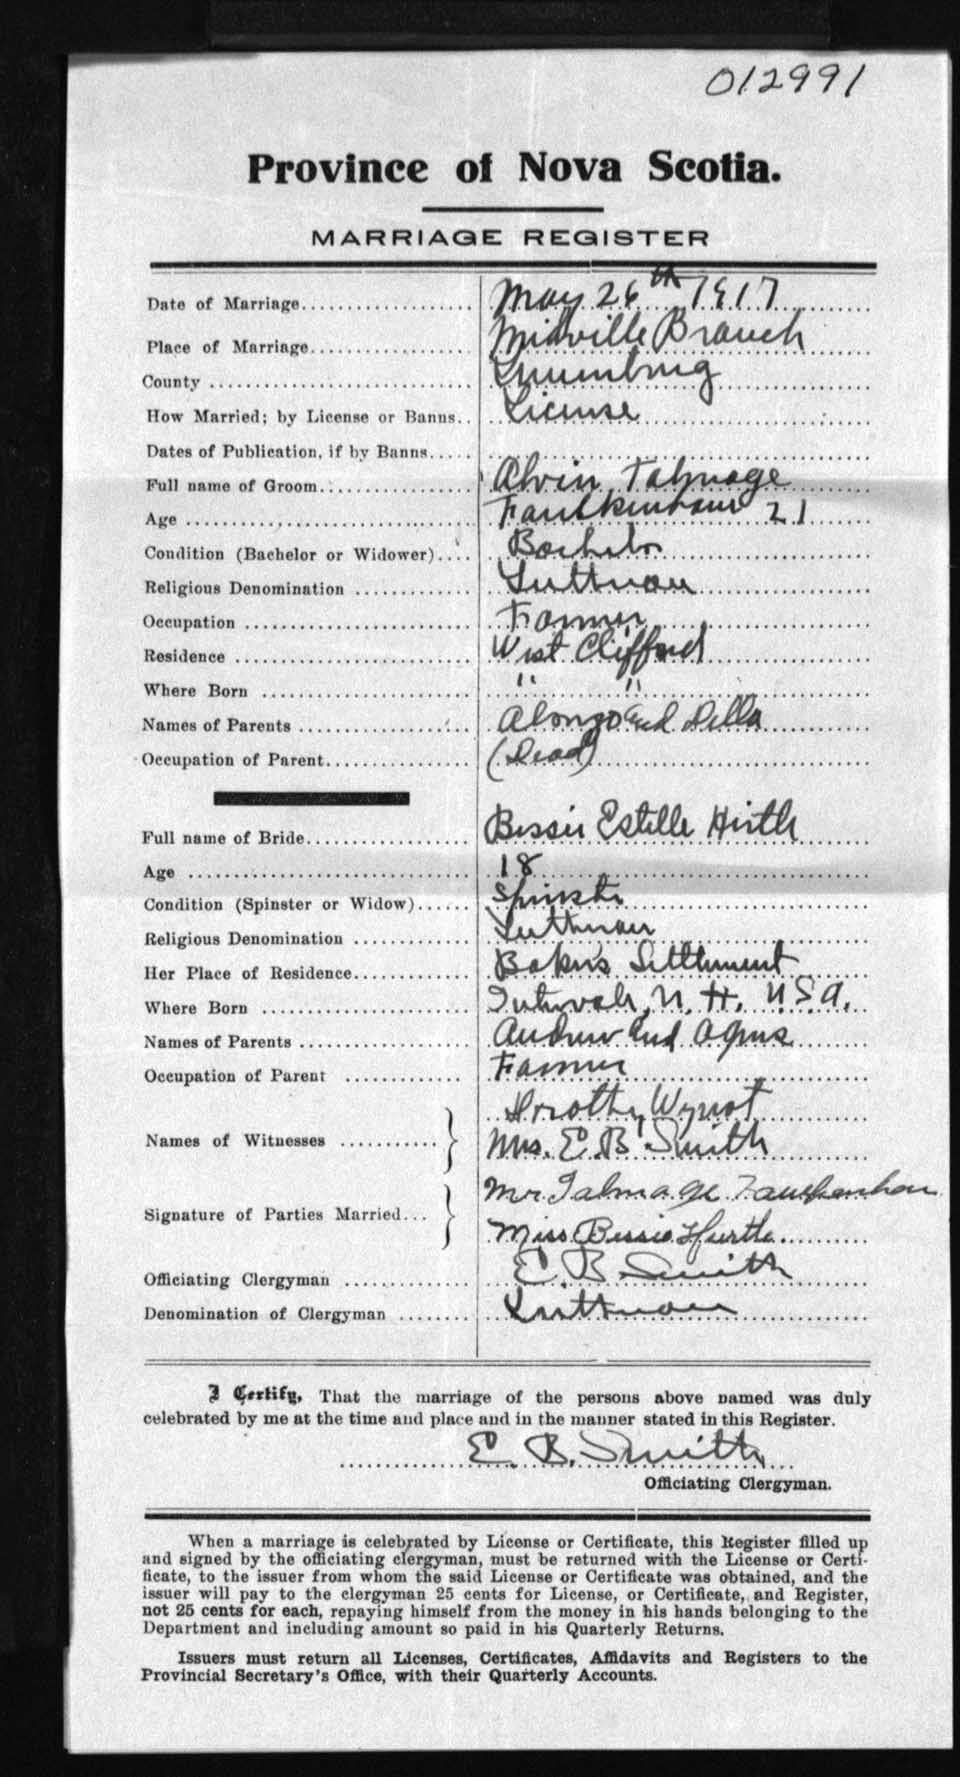 012991
Province of Nova Scotia.
MARRIAGE REGISTER
Date of Marriage May 26th 1917
Place of Marriage Midville Branch
County Lunenburg
How Married; by License or Banns License
Dates of Publication, if by Banns
Full name of Groom Alvin Talmage
Age Faulkenham 21
Condition (Bachelor or Widower) Bachelor
Religious Denomination Lutheran
Occupation Farmer
Residence West Clifford
Where Born " "
Names of Parents Alonzo and Della
Occupation of Parent (Dead)
Full name of Bride Bessie Estelle Hirtle
Age 18
Condition (Spinster or Widow) Spinster
Religious Denomination Lutheran
Her Place of Residence Baker's Settlement
Where Born Intervale, N. H. U.S.A.
Names of Parents Andrew and Agnes
Occupation of Parent Farmer
Names of Witnesses Dorothy Wynot
Mrs. E. B. Smith
Signature of Parties Married Mr Talmage Faulkenham
Miss Bessie Hirtle
Officiating Clergyman E. B. Smith
Denomination of Clergyman Lutheran
I Certify, That the marriage of the persons above named was duly
celebrated by me at the time and place and in the manner stated in this Register.
E. B. Smith
Officiating Clergyman.
When a marriage is celebrated by License or Certificate, this Register filled up
and signed by the officiating clergyman, must be returned with the License or Certi-
ficate, to the issuer from whom the said License or Certificate was obtained, and the
issuer will pay to the clergyman 25 cents for License, or Certificate, and Register,
not 25 cents for each, repaying himself from the money in his hands belonging to the
Department and including amount so paid in his Quarterly Returns.
Issuers must return all Licenses, Certificates, Affidavits and Registers to the
Provincial Secretary's Office, with their Quarterly Accounts.